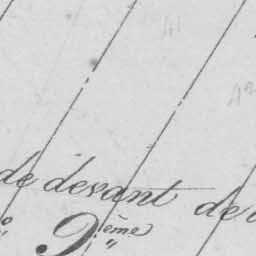 de devant de
2ème